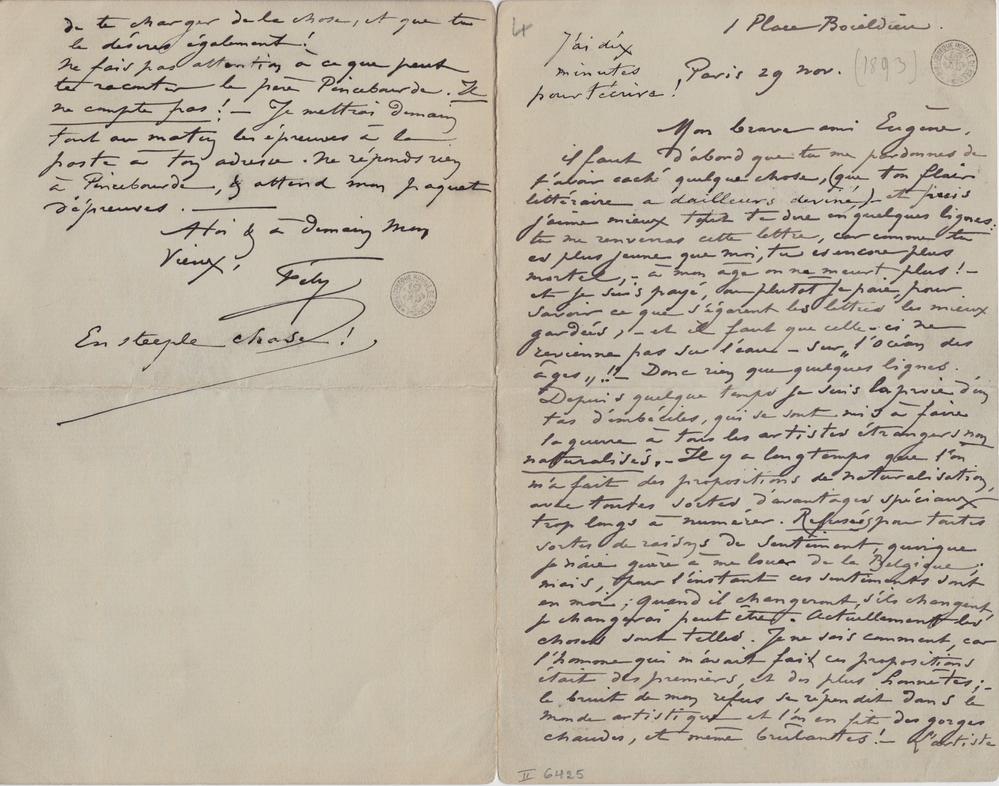 de te charger de la chose, et que tu
le désires également !
ne fais pas attention à ce que peut
te raconter le père Pincebourde. Il
ne compte pas ! – Je mettrai demain
tout au matin les épreuves à la
poste à ton adresse. Ne réponds rien
à Pincebourde, & attend mon paquet
d'épreuves. —
A toi & à demain mon
Vieux,
Fély
En steeple chase !
4
1 Place Boieldieu.
J'ai dix
minutes
pour t'écrire !
Paris 29 nov.
(1893)
Mon brave ami Eugène,
il faut d'abord que tu me pardonnes de
t'avoir caché quelque chose, (que ton flair
littéraire a d'ailleurs deviné) – et puis
j'aime mieux tout te dire en quelques lignes.
tu me renverras cette lettre, car comme tu
es plus jeune que moi, tu es encore plus
mortel, – à mon âge on ne meurt plus ! –
et je suis payé, ou plutôt je paie, pour
savoir ce que s'égarent les lettres les mieux
gardées, – et il faut que celle-ci ne
revienne pas sur l'eau – sur „l'océan des
âges„ !! – Donc rien que quelques lignes.
Depuis quelque temps je suis la proie d'un
tas d'imbéciles, qui se sont mis à faire
la guerre à tous les artistes étrangers non
naturalisés. – Il y a longtemps que l'on
m'a fait des propositions de naturalisation,
avec toutes sortes d'avantages spéciaux
trop longs à numérer. Refusées pour toutes
sortes de raisons de sentiment, quoique
je n'aie guère à me louer de la Belgique ;
mais, pour l'instant ces sentiments sont
en moi ; quand il changeront, s'ils changent,
je changerai peut être. Actuellement les
choses sont telles. Je ne sais comment, car
l'homme qui m'avait fait ces propositions
était des premiers, et des plus honnêtes ; –
le bruit de mon refus se répendit dans le
monde artistique et l'on en fit des gorges
chaudes, et même brûlantes ! – L'artiste
II 6425